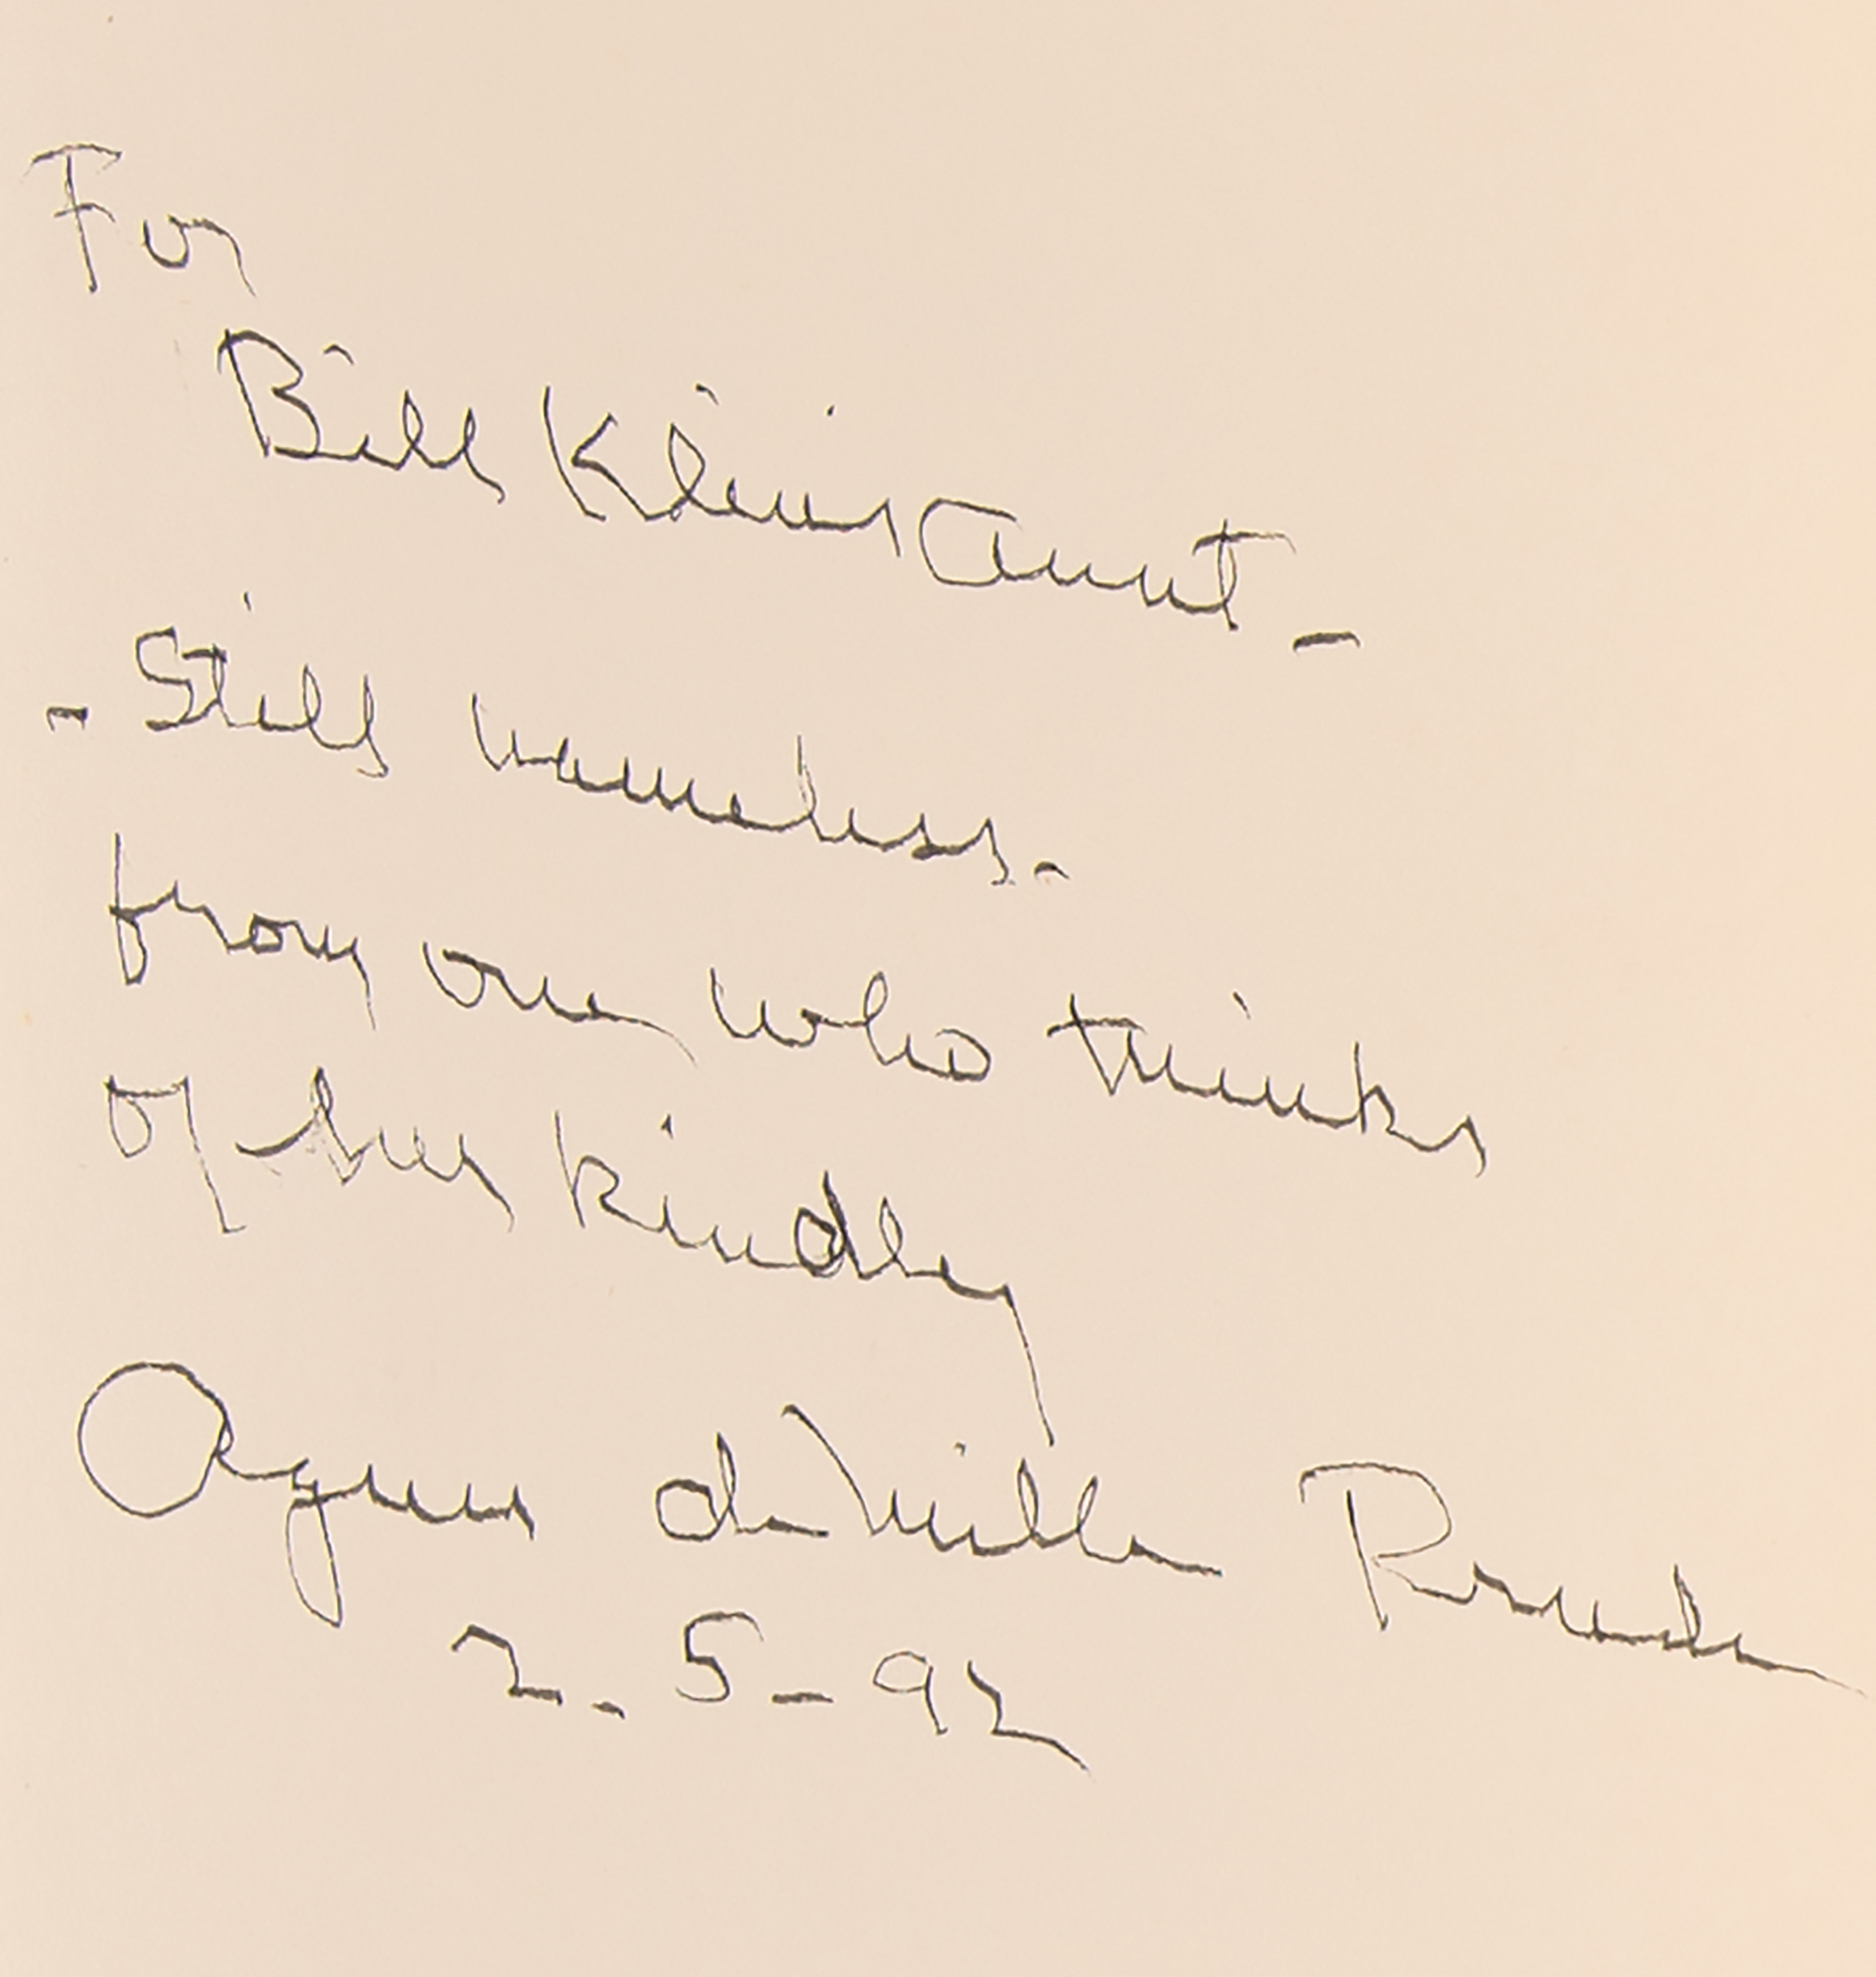 For
Bill Klein's Aunt -
- Still nameless -
from one who thinks
of her kindly
Agnes de Mille Prude
2 - 5 - 92